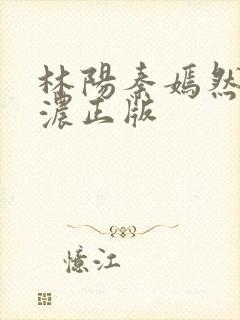 林陽秦嫣然
濃正版
憶江